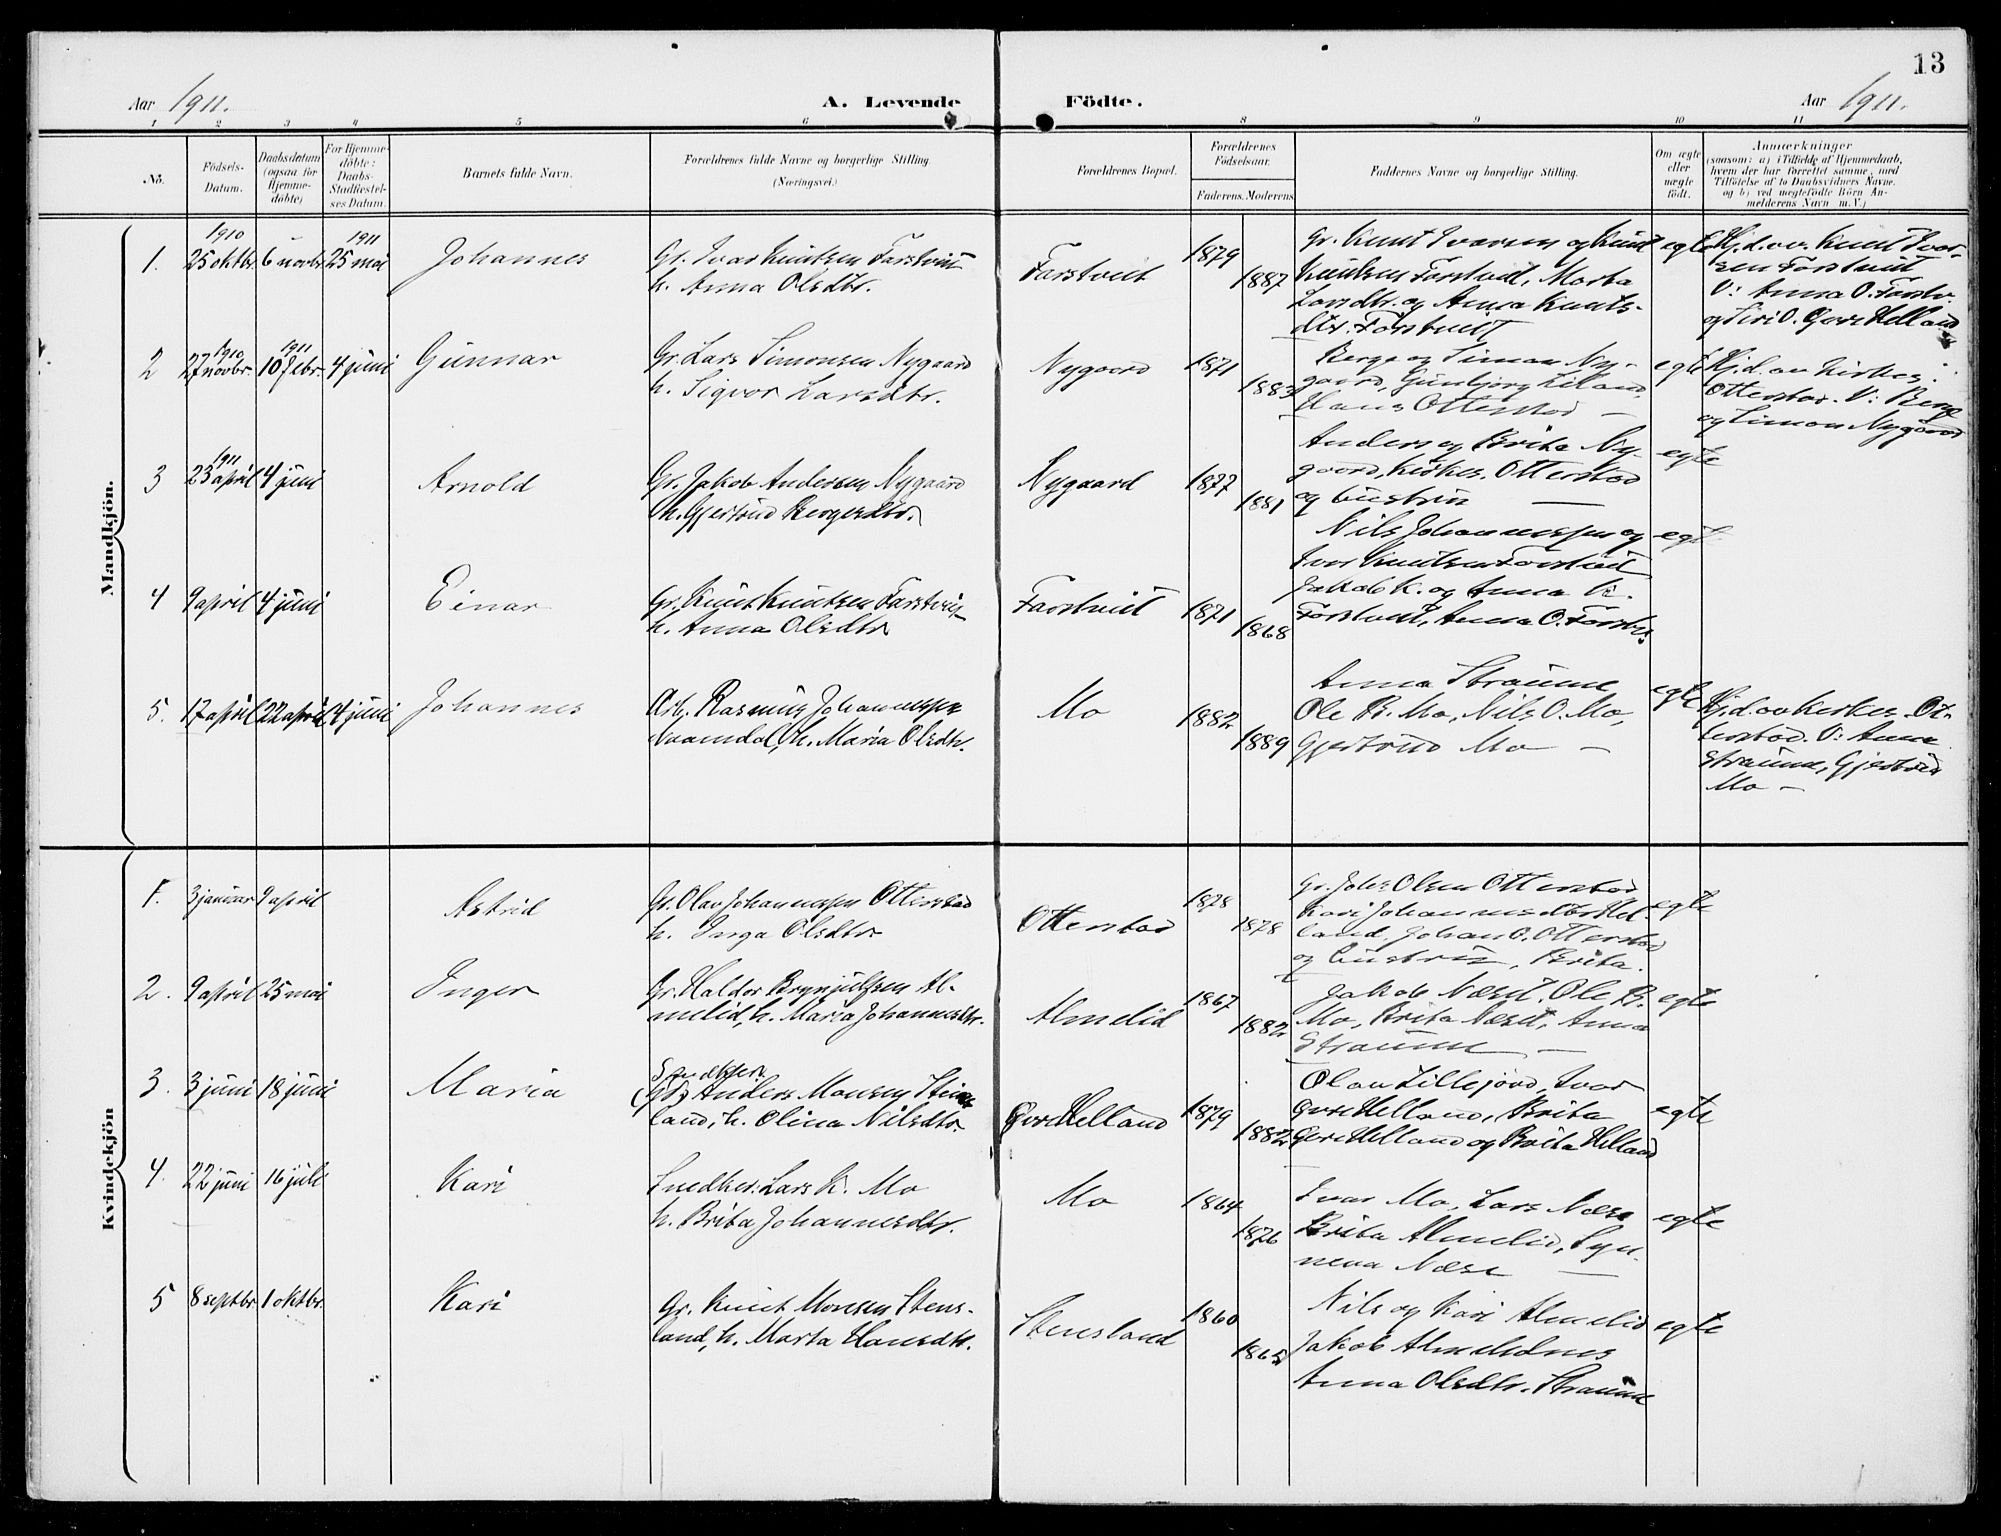 13
Aar 1911.
A. Levende Födte.
Aar 1911.
1 2 3 4 5 6 8 9 10 11
No.
Födsels-
Datum.
Daabsdatum
(ogsaa for
Hjemme-
döbte)
For Hjemme-
döbte:
Daabs-
Stadfæstel-
ses Datum.
Barnets fulde Navn.
Forældrenes fulde Navne og borgerlige Stilling.
(Næringsvei.)
Forældrenes Bopæl.
Forældrenes
Födselsaar.
Faderens. Moderens.
Faddernes Navne og borgerlige Stilling.
Om ægte
eller
uægte
födt.
Anmærkninger
(saasom: a) i Tilfælde af Hjemmedaab,
hvem der har forrettet samme, med
Tilföielse af to Daabsvidners Navne.
og b) ved uægtefödte Börn An-
melderens Navn m. V.)
Mandkjön.
1.
1910
25 oktbr.
6 novbr.
1911
25 mai
Johannes
Gr. Ivar Knutsen Farstveit
h. Anna Olsdtr.
Farstveit
1879
1887
Gr. Knut Ivarsen og Knut
Knutsen Farstveit, Marta
Larsdtr. og Anna Knuts-
dtr. Farstveit
egte
Hj.d. av Knut Ivar-
sen Farstveit
V: Anna O. Farstv.
og Siri O. Gjerehelland
2
1910
27 novbr.
1911
10 febr.
4 juni
Gunnar
Gr. Lars Simonsen Nygaard
h. Sigvor Larsdtr.
Nygaard
1871
1883
Berge og Simon Ny-
gaard, Gunbjörg Liland
Hans Otterstad —
egte
Hj.d. av kirkes.
Otterstad. V: Berge
og Simon Nygaard
3
1911
23 april
4 juni
Arnold
Gr. Jakob Andersen Nygaard
h. Gjertrud Bergesdtr.
Nygaard
1877
1881
Anders og Brita Ny-
gaard, kirkes. Otterstad
og hustru —
egte
4
9 april
4 juni
Einar
Gr. Knut Knutsen Farstveit
h. Anna Olsdtr
Farstveit
1871
1868
Nils Johannessen og
Ivar Knutsen Farstveit
Jakob K. og Anna K.
Farstveit, Anna O. Farstv.
egte
5.
17 april
22 april
4 juni
Johannes
Arb. Rasmus Johannessen
Naamdal, h. Maria Olsdtr.
Mo
1882
1889
Anna Straume
Ole B. Mo, Nils O. Mo,
Gjertrud Mo —
egte
Hj.d. av kirkes. Ot-
terstad. V: Anna
Straume, Gjertrud
Mo —
Kvindekjön
1.
3 januar
9 april
Astrid
Gr. Olav Johannessen Otterstad
h. Inga Olsdtr
Otterstad
1878
1878
Gr. Johs Olsen Otterstad
Kari Johannesdtr Hel-
land, Johan O. Otterstad
og hustru, Brita.
egte
2.
9 april
25 mai
Inger
Gr. Haldor Brynjulfsen Al-
melid, h. Maria Johannesdtr.
Almelid
1867
1882
Jakob Næset, Ole B.
Mo, Brita Næset, Anna
Straume —
egte
3.
3 juni
18 juni
Maria
Snedker
Anders Monsen Stens-
land, h. Olina Nilsdtr.
Gjerehelland
1879
1882
Olav Lillejord, Ivar
Gjerehelland, Brita
Gjerehelland og Brita Helland
egte
4.
22 juni
16 juli
Kari
Snedker: Lars K. Mo
h. Brita Johannesdtr.
Mo
1864
1876
Ivar Mo, Lars Næse
Brita Almelid, Syn-
neva Næse —
egte
5
8 septbr.
1 oktbr.
Kari
Gr. Knut Monsen Stens-
land, h. Marta Hansdtr.
Stensland
1860
1865
Nils og Kari Almelid
Jakob Almelidnes
Anna Olsdtr. Straume
egte